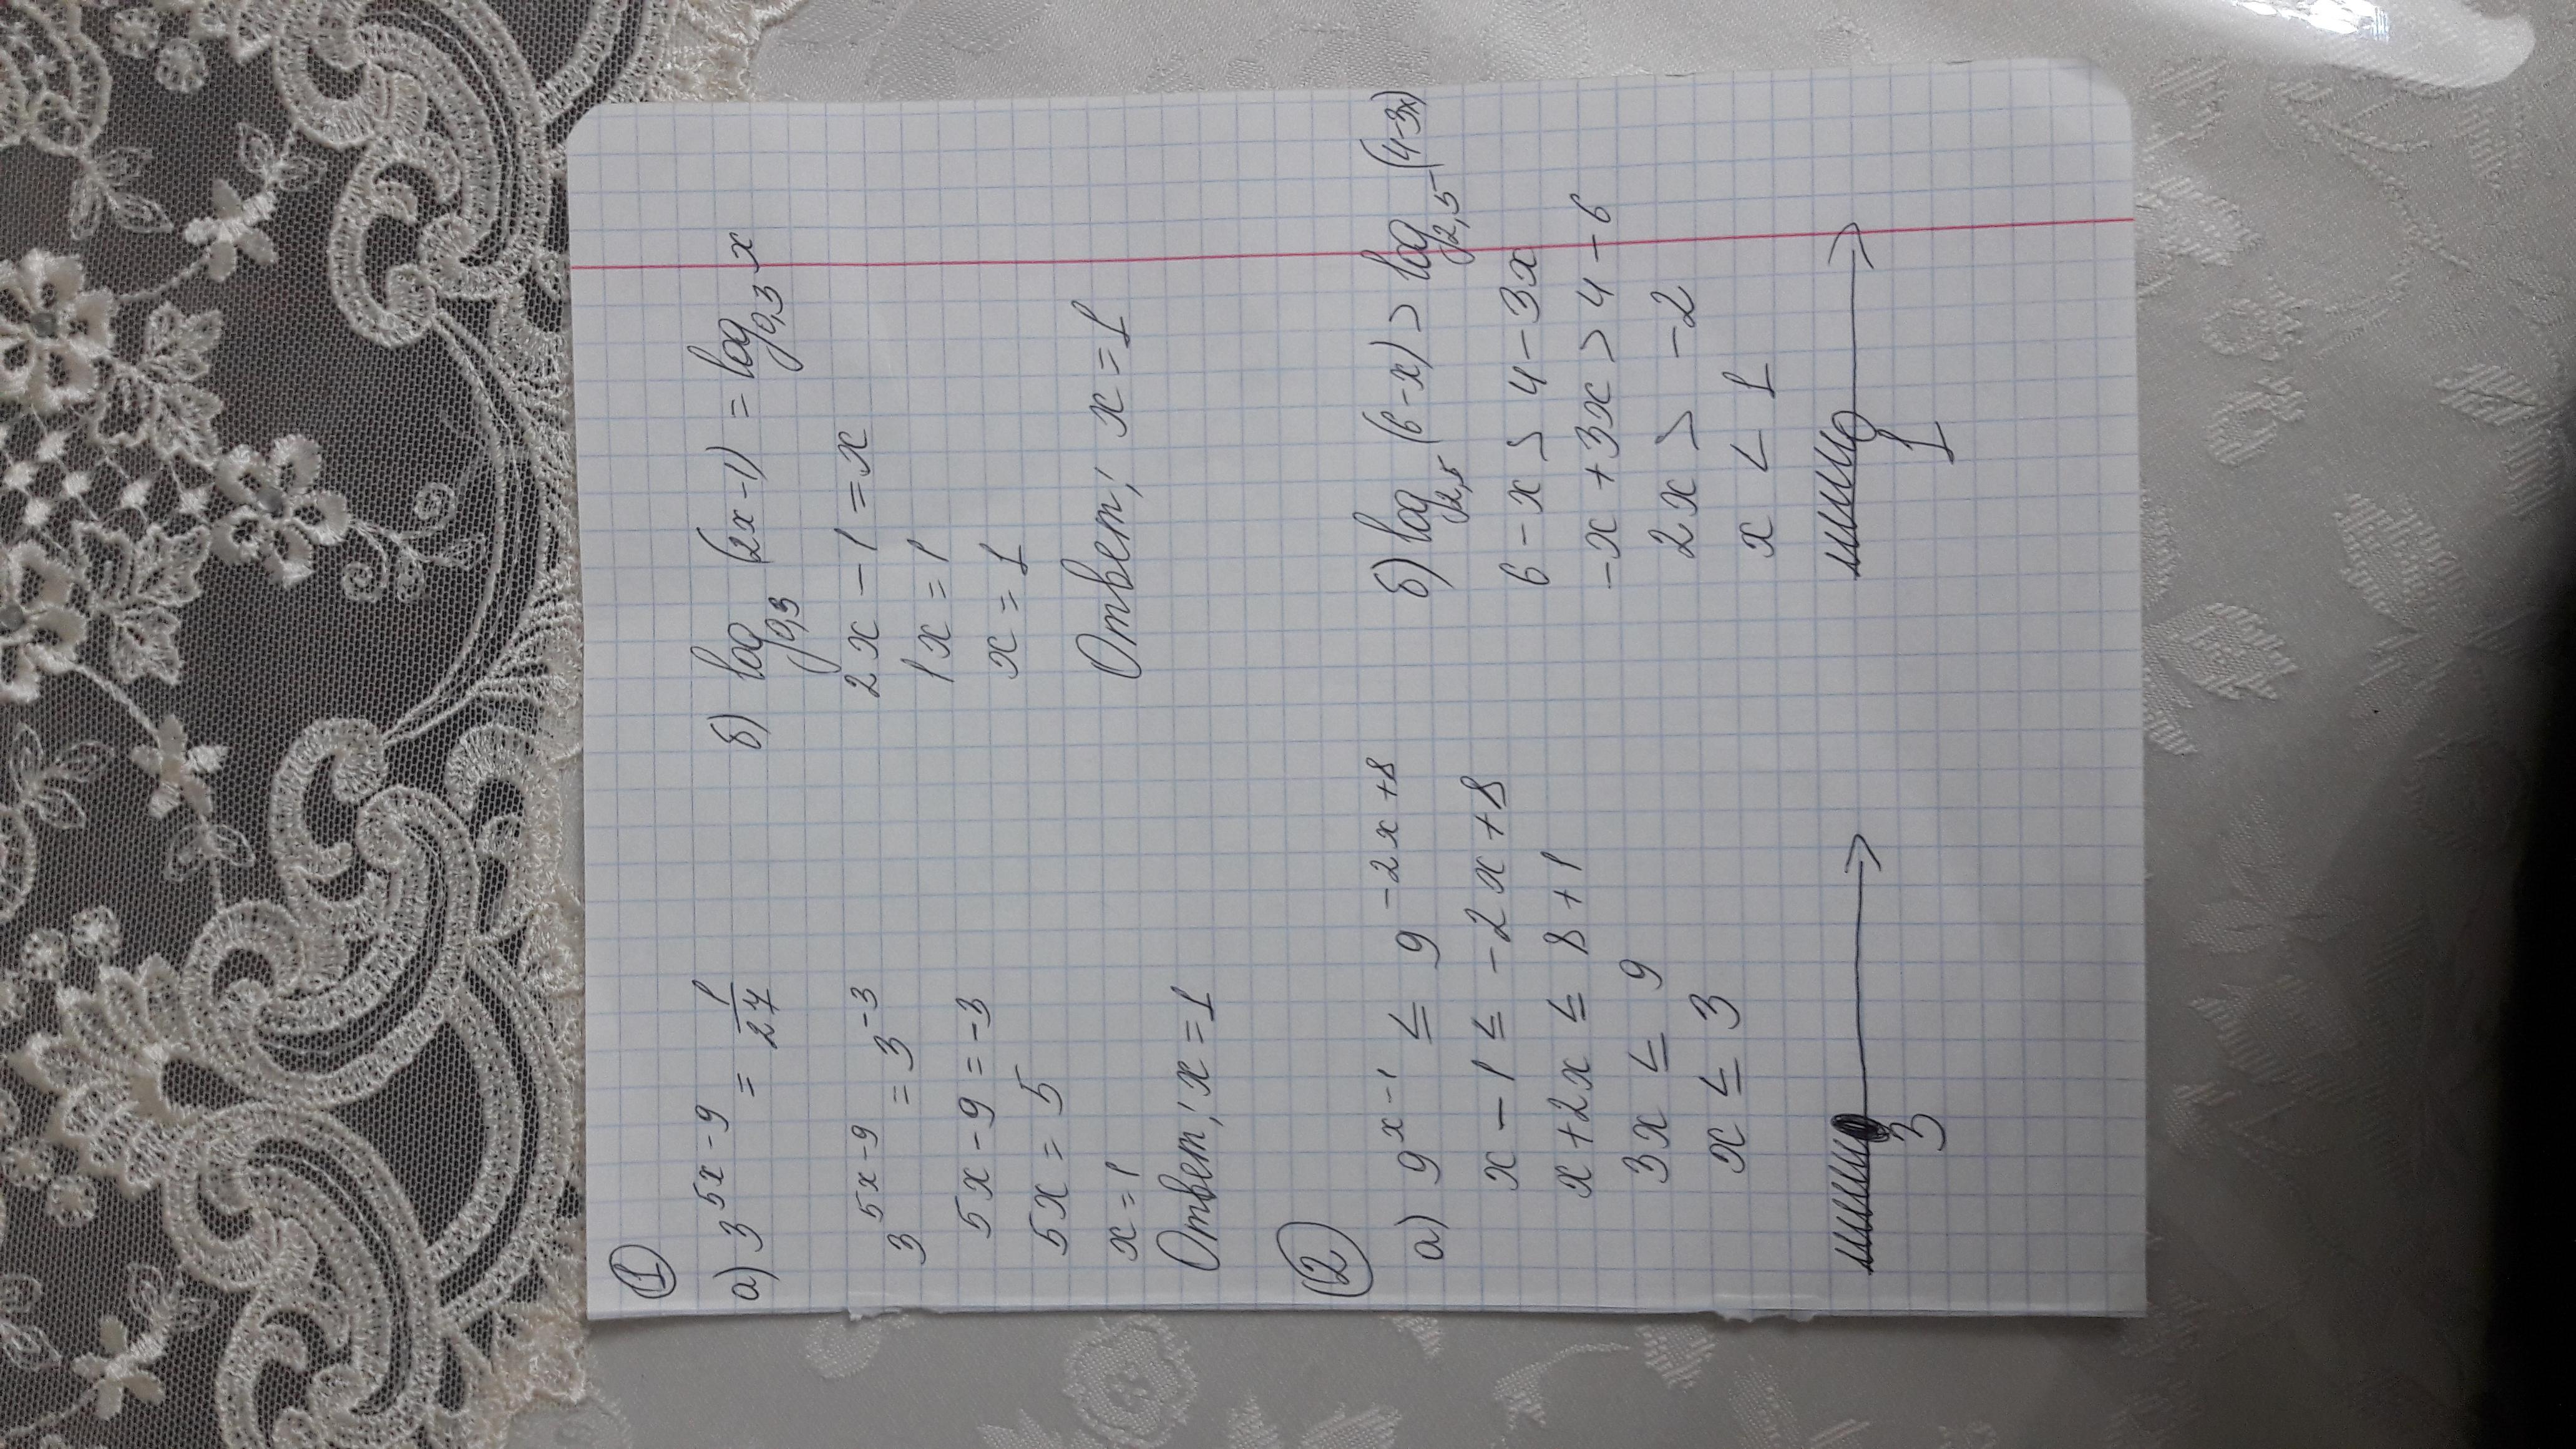 1
а) 3^(5x-9) = 1/27
3^(5x-9) = 3^(-3)
5x-9=-3
5x = 5
x=1
Ответ; x=1
б) log_0,3 (2x-1) = log_0,3 x
2x-1=x
1x=1
x=1
Ответ; x=1
2
а) 9^(x-1) ≤ 9^(-2x+8)
x-1≤-2x+8
x+2x ≤ 8+1
3x ≤ 9
x ≤ 3
3
б) log_2,5 (6-x) > log_2,5 (4-3x)
6-x > 4-3x
-x+3x > 4-6
2x > -2
x < 1
1